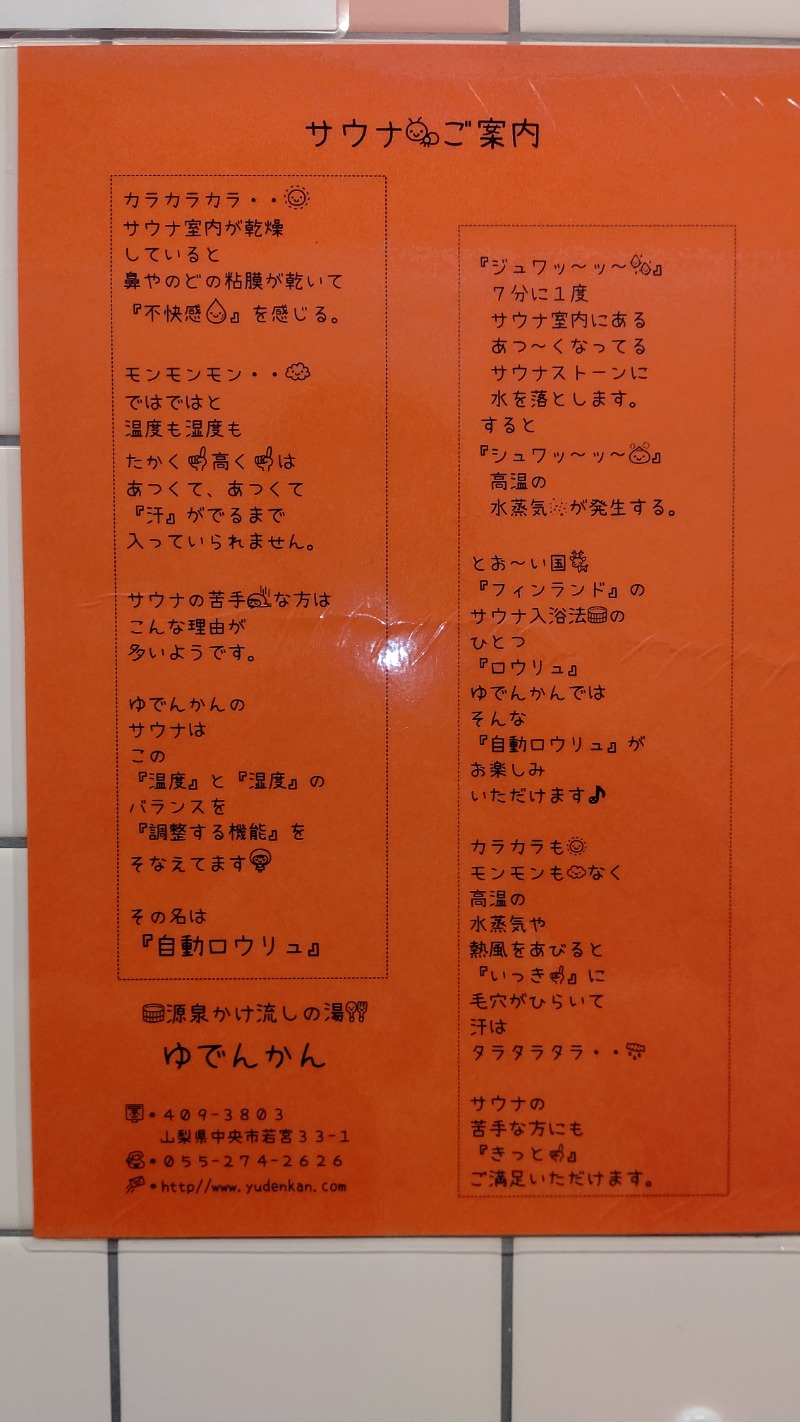 サウナご案内
カラカラカラ・・
サウナ室内が乾燥
していると
鼻やのどの粘膜が乾いて
『不快感』を感じる。
モンモンモン・・
ではではと
温度も湿度も
たかく高くは
あつくて、あつくて
『汗』がでるまで
入っていられません。
サウナの苦手な方は
こんな理由が
多いようです。
ゆでんかんの
サウナは
この
『温度』と『湿度』の
バランスを
『調整する機能』を
そなえてます
その名は
『自動ロウリュ』
源泉かけ流しの湯
ゆでんかん
・409-3803
山梨県中央市若宮33-1
・055-274-2626
・http//www.yudenkan.com
『ジュワッ～ッ～』
7分に1度
サウナ室内にある
あつ～くなってる
サウナストーンに
水を落とします。
すると
『シュワッ～ッ～』
高温の
水蒸気が発生する。
とお～い国
『フィンランド』の
サウナ入浴法の
ひとつ
『ロウリュ』
ゆでんかんでは
そんな
『自動ロウリュ』が
お楽しみ
いただけます♪
カラカラも
モンモンもなく
高温の
水蒸気や
熱風をあびると
『いっき』に
毛穴がひらいて
汗は
タラタラタラ・・
サウナの
苦手な方にも
『きっと』
ご満足いただけます。